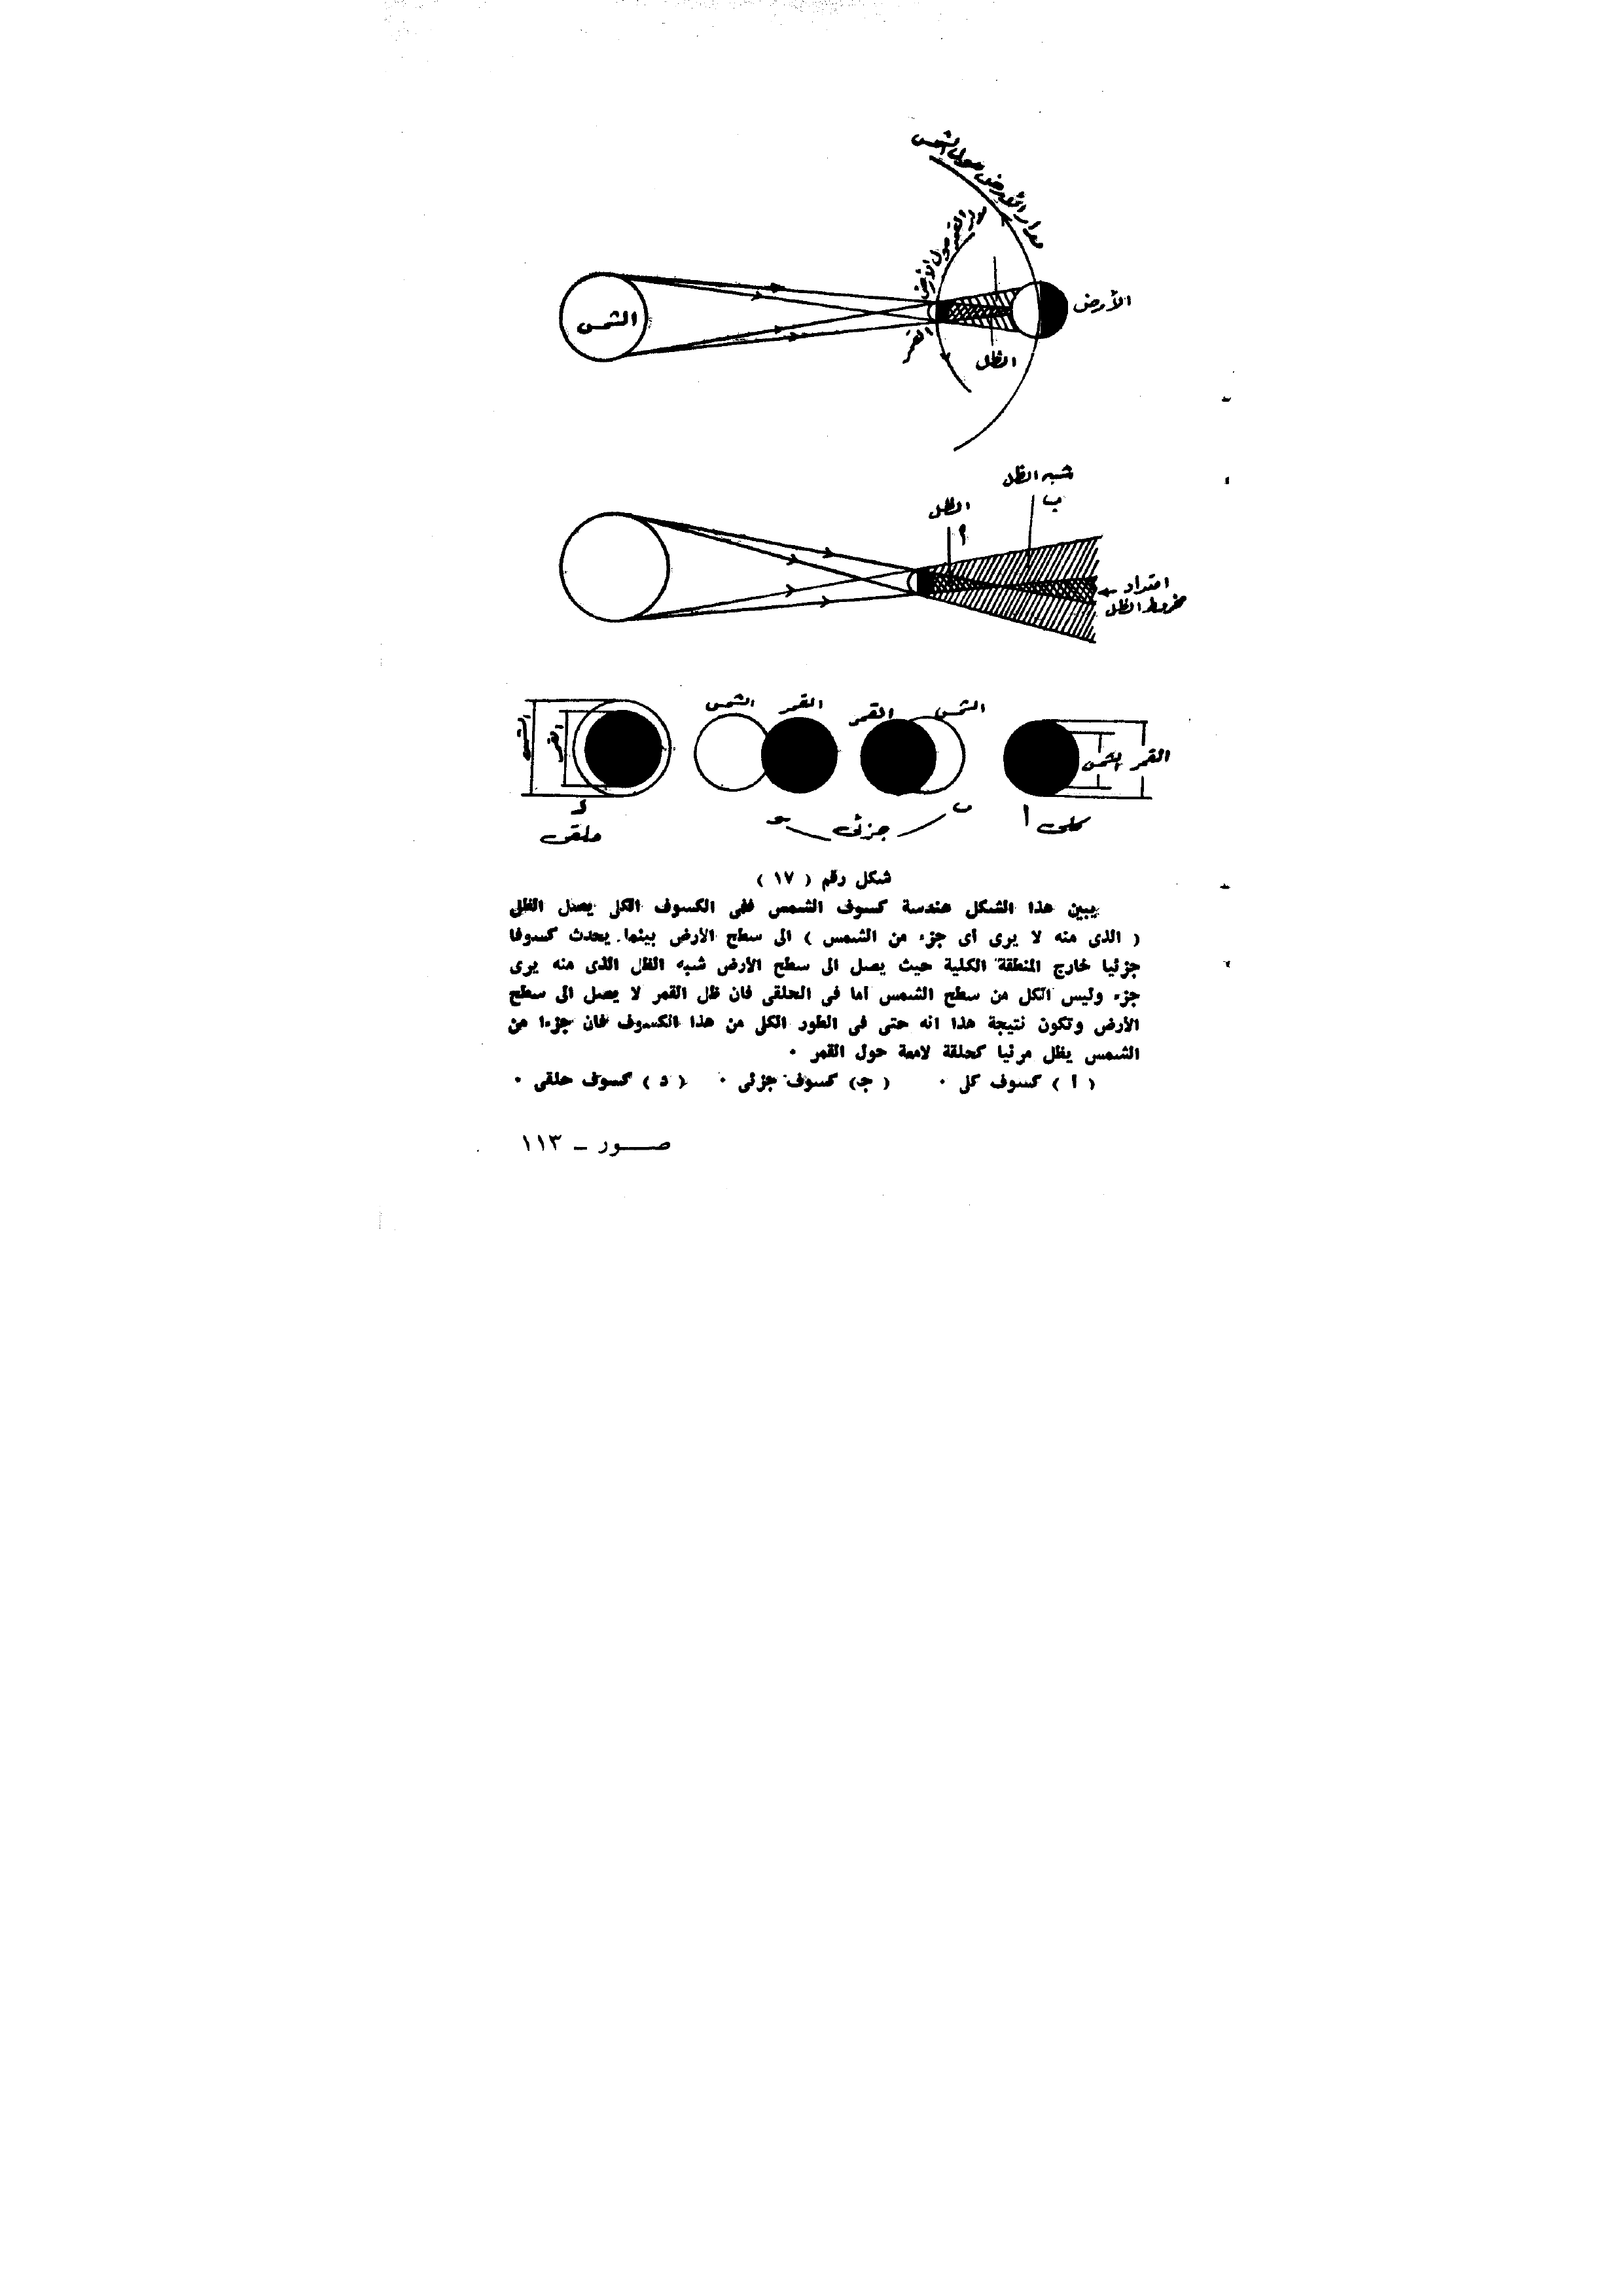 مدار الأرض حول الشمس
مدار القمر حول الأرض
الشمس
الأرض
القمر
الظل
شبه الظل
ب
الظل
أ
امتداد
مخروط الظل
الشمس القمر القمر الشمس
الشمس القمر الشمس القمر
د ج ب أ
حلقى جزئى كلى
شكل رقم ( ١٧ )
يبين هذا الشكل هندسة كسوف الشمس ففى الكسوف الكلى يصل الظل
( الذى منه لا يرى أى جزء من الشمس ) الى سطح الأرض بينما يحدث كسوفا
جزئيا خارج المنطقة الكلية حيث يصل الى سطح الأرض شبه الظل الذى منه يرى
جزء وليس الكل من سطح الشمس أما فى الحلقى فان ظل القمر لا يصل الى سطح
الأرض وتكون نتيجة هذا انه حتى فى الطور الكلى من هذا الكسوف فان جزءا من
الشمس يظل مرئيا كحلقة لامعة حول القمر ٠
( ا ) كسوف كلى ٠ ( جـ) كسوف جزئى ٠ ( د ) كسوف حلقى ٠
صـــور ـ ١١٣